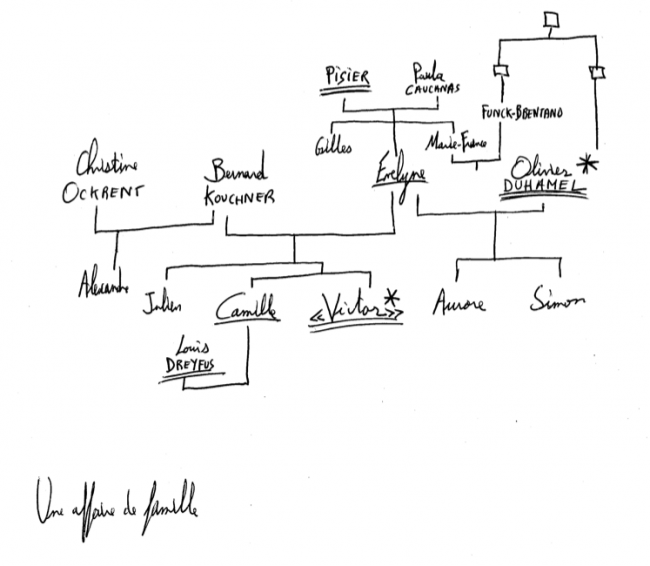 PISIER
Paula
CAUCANAS
FUNCK-BRENTANO
Gilles
Marie-France
Christine
OCKRENT
Bernard
KOUCHNER
Evelyne
Olivier *
DUHAMEL
Alexandre
Julien
Camille
«Victor» *
Aurore
Simon
Louis
DREYFUS
Une affaire de famille